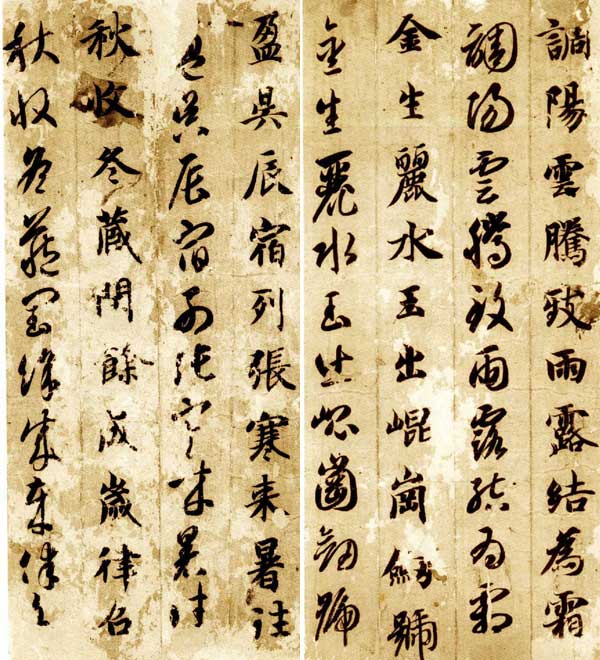 調陽雲騰致雨露結為霜
調陽雲騰致雨露結為霜
金生麗水玉出崐崗劒號
金生麗水玉出崐崗劒號
盈昃辰宿列張寒来暑往
盈昃辰宿列張寒来暑往
秋收冬蔵閏餘成歲律召
秋收冬蔵閏餘成歲律召